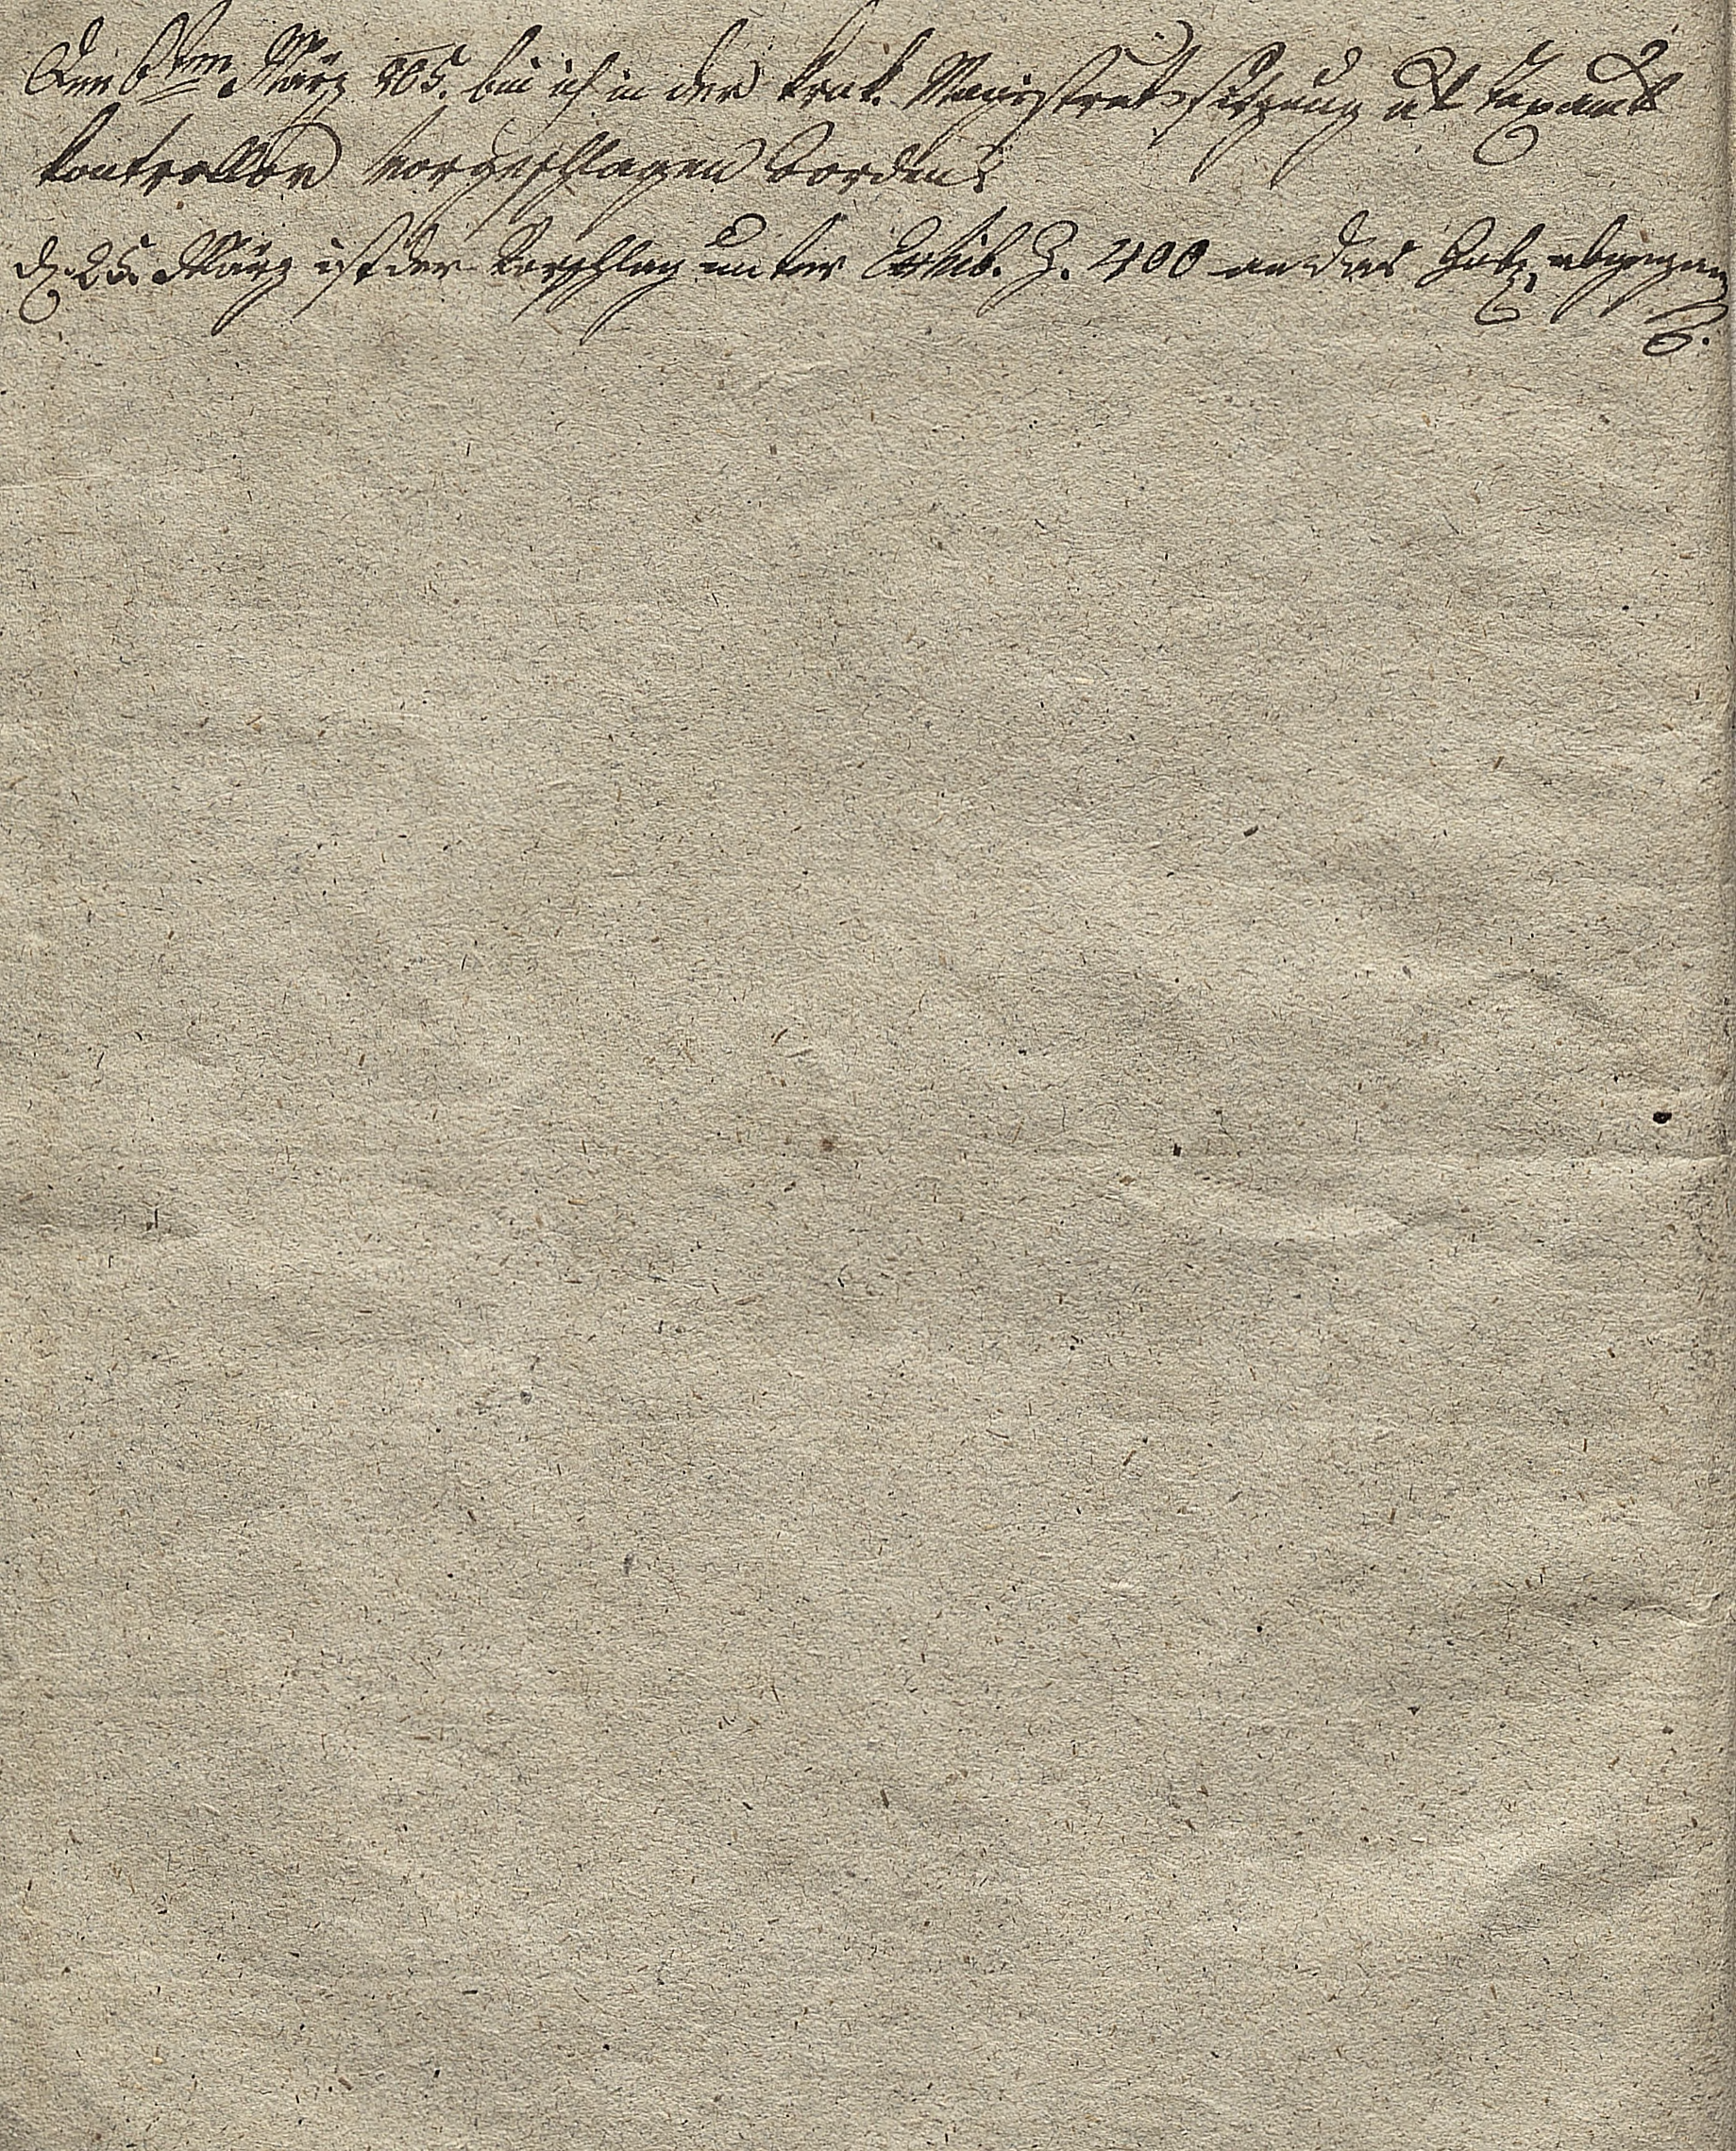 Den 6ten März 805. bin ich in der krak. Magistratssitzung als Taxamts
kontrollor vorgeschlagen worden.
d. 25. März ist der Vorschlag unter Exhib. Z. 400 an das Gub. abgegan
g.